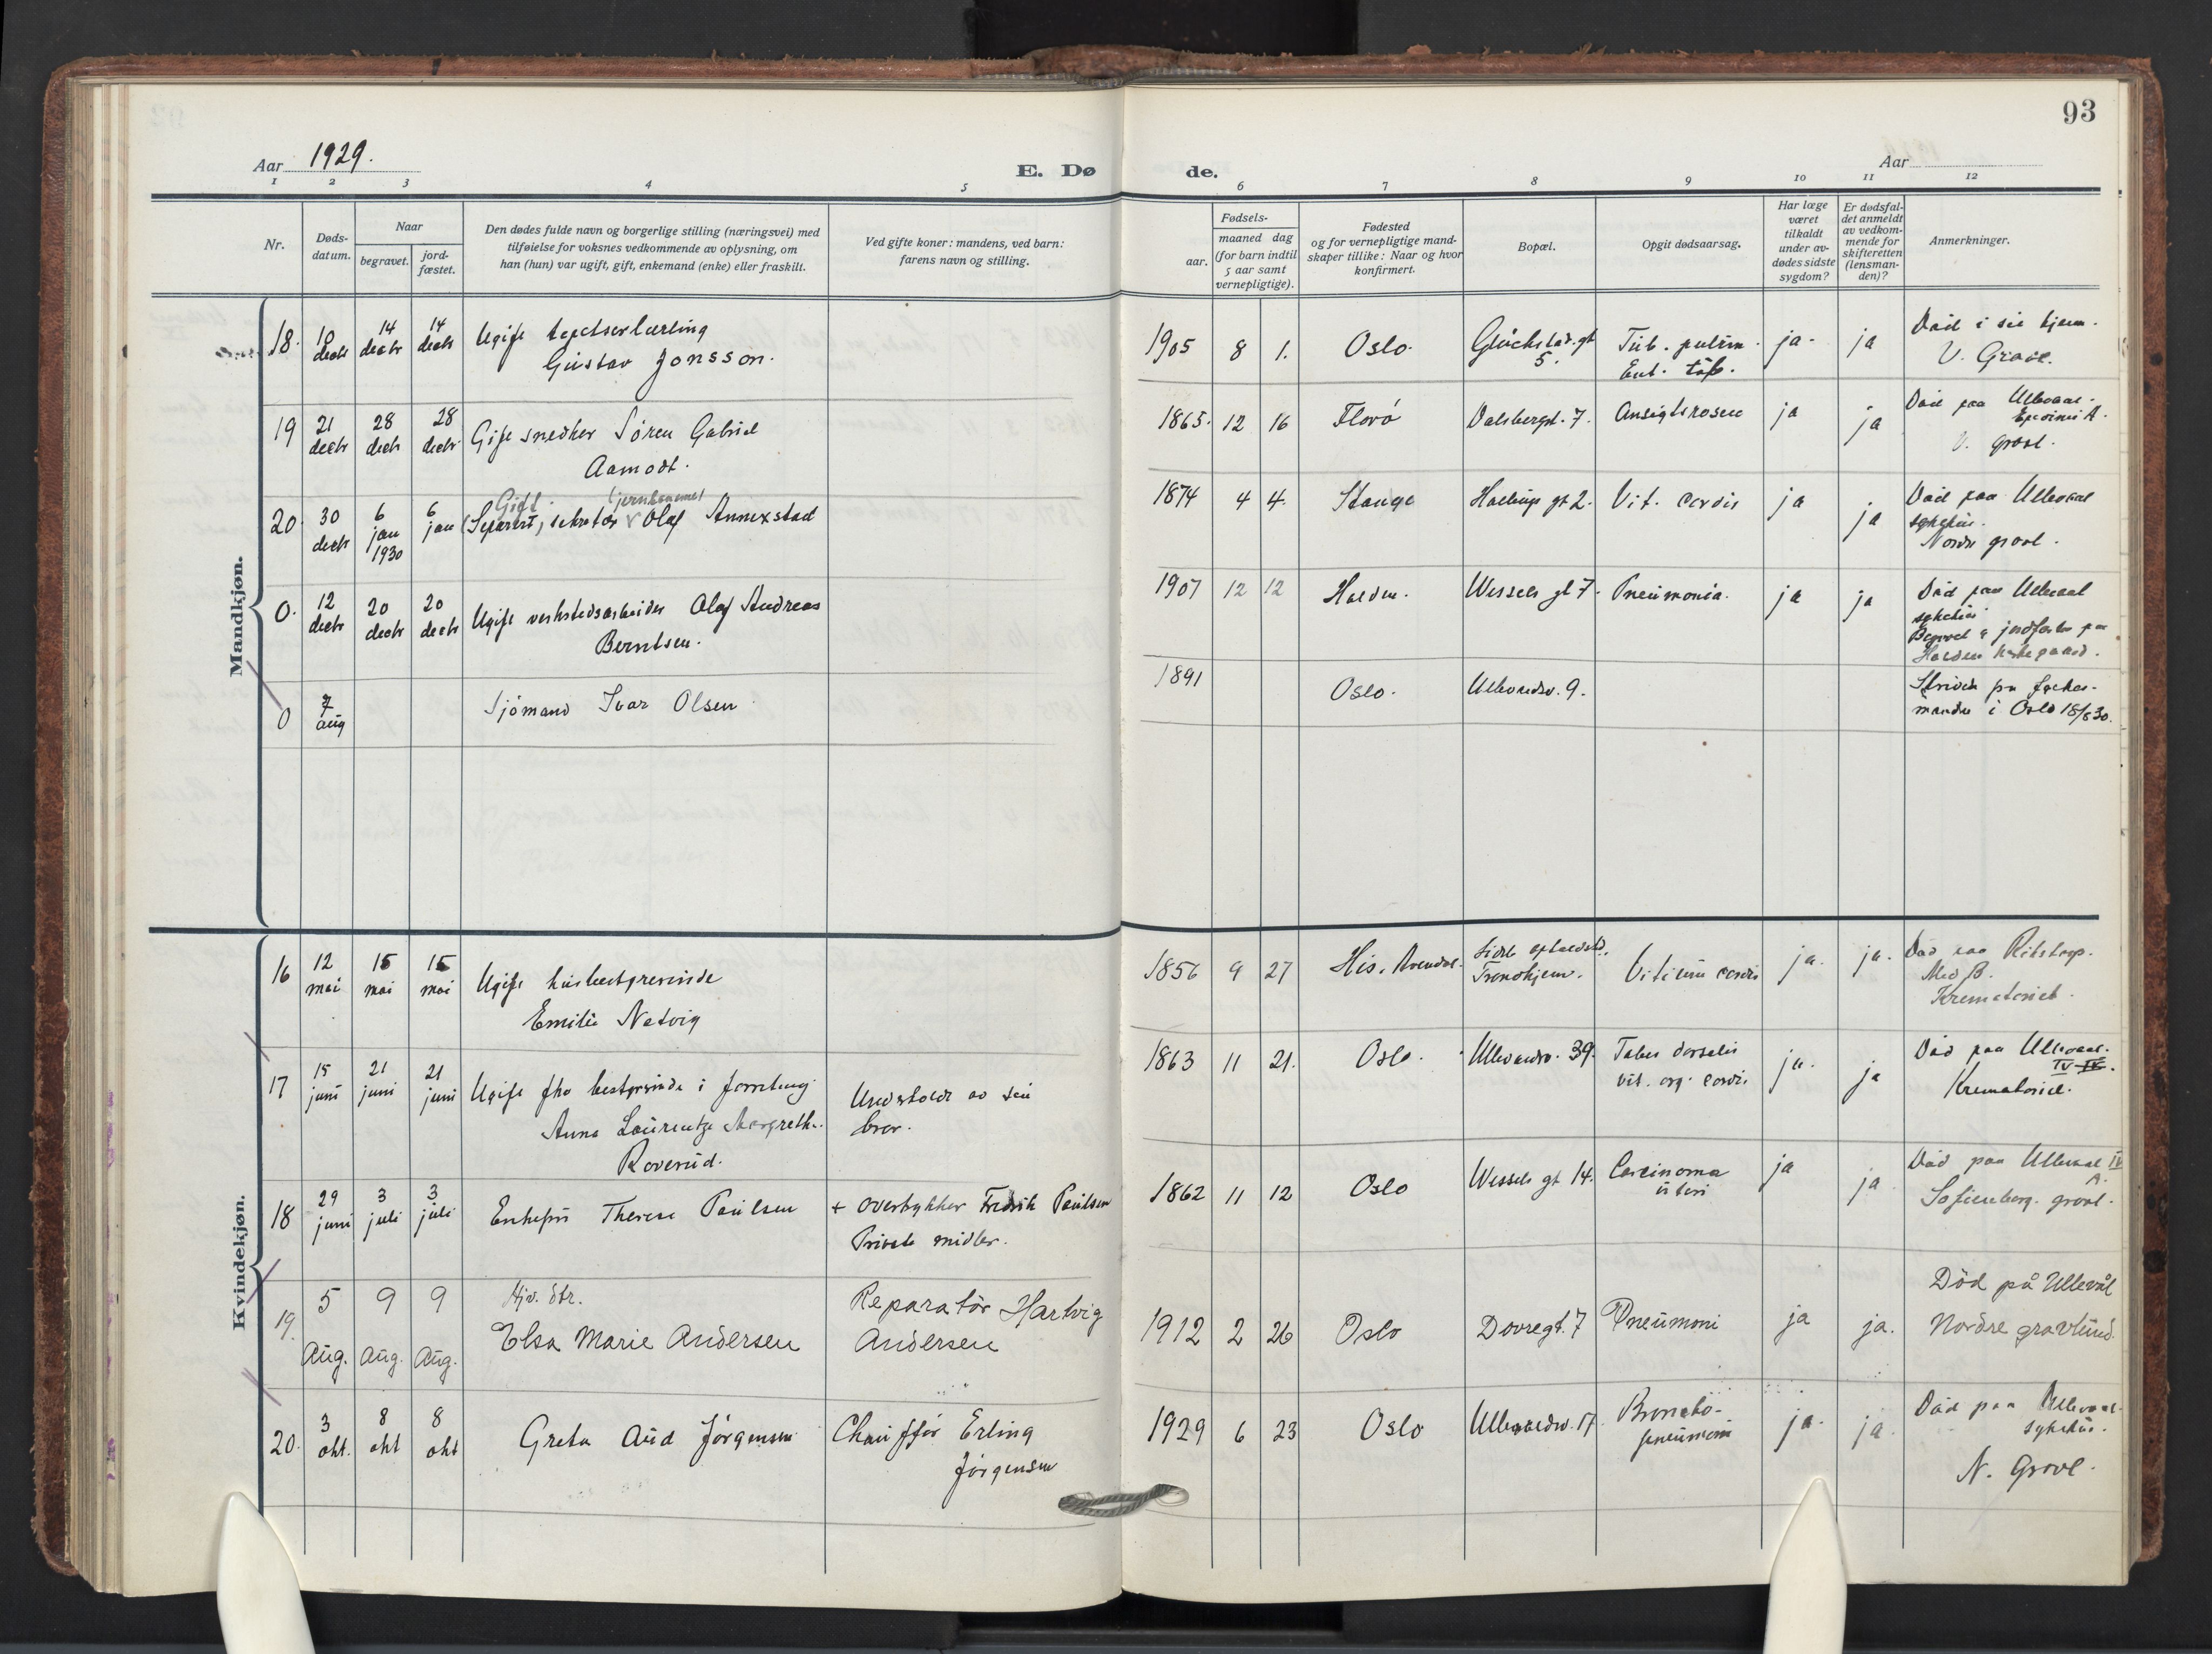 93
Aar 1929.
E. Dø de.
Aar
1 2 3 4 5 6 7 8 9 10 11 12
Nr.
Døds-
datum.
Naar
begravet.
jord-
fæstet.
Den dødes fulde navn og borgerlige stilling (næringsvei) med
tilføielse for voksnes vedkommende av oplysning, om
han (hun) var ugift, gift, enkemand (enke) eller fraskilt.
Ved gifte koner: mandens, ved barn:
farens navn og stilling.
Fødsels-
aar.
maaned dag
(for barn indtil
5 aar samt
vernepligtige).
Fødested
og for vernepligtige mand-
skaper tillike: Naar og hvor
konfirmert.
Bopæl.
Opgit dødsaarsag.
Har læge
været
tilkaldt
under av-
dødes sidste
sygdom?
Er dødsfal-
det anmeldt
av vedkom-
mende for
skifteretten
(lensman-
den)?
Anmerkninger.
Mandkjøn.
18. 10 decbr 14 decbr 14 decbr Ugift
Gustav Jonsson.
1905 8 1. Oslo. 5. Tub. pulm. ja. ja
Ent. tub.
V. Gravl.
19 21 decbr 28 decbr 28 decbr Gift snedker Søren Gabriel
Aamodt.
1865. 12 16 Florø Dalsbergst. 7. Ansigtsrosen ja ja Død paa Ullevaal.
V. gravl.
20. 30 decbr 6 jan 1930 6 jan Gift
(Separert), sekretær Olaf Annexstad
1874 4 4. Stange gt 2. Vit. cordis ja ja Død paa Ullevaal
sykehus.
Nordre gravl.
0. 12 decbr 20 decbr 20 decbr Ugift verkstedsarbeider Olaf Andreas
Berntsen.
1907 12 12 Halden. Wessels gt 7. Pneumonia. ja ja Død paa Ullevaal
sykehus
Begravet & jordfestet paa
Halden kirkegaard.
0 7 aug Sjømand Ivar Olsen
1891 Oslo. Ullevaalsv. 9.
i Oslo 18/8 30.
Kvindekjøn.
16 12 mai 15 mai 15 mai Ugift husbestyrerinde
Emilie Natvig
1856 9 27 His. Arendal. Sidste opholdst.
Trondhjem. Vitium cordis ja. ja.
Krematoriet.
17 15 juni 21 juni 21 juni Ugift fhv bestyrerinde i forretning
Anna Laurentze Margrethe
Roverud.
Understøttet av sin
bror.
1863 11 21. Oslo. Ullevaalsv. 39. Tabes dorsalis
vit. org. cordis ja. ja Død paa Ullevaal.
IV
Krematoriet.
18 29 juni 3 juli 3 juli Enkefru Therese Paulsen
+ overbygger Fredrik Paulsen
Private midler.
1862 11 12 Oslo Wessels gt 14. Carcinoma
uteri ja ja Død paa Ullevaal IV
A.
Sofienberg. gravl.
19. 5 Aug. 9 Aug. 9 Aug. Hjv. dtr.
Elsa Marie Andersen
Reparatør Hartvig
Andersen
1912 2 26 Oslo Dovregt. 7 Pneumoni ja ja. Död på Ullevål
Nordre gravlund.
20. 3 okt. 8 okt 8 okt Greta Aud Jørgensen
Chauffør Erling
Jørgensen
1929 6 23 Oslo Ullevaalsv. 17. Broncho-
pneumoni ja. ja. Død paa Ullevaal
sykehus.
N. Gravl.